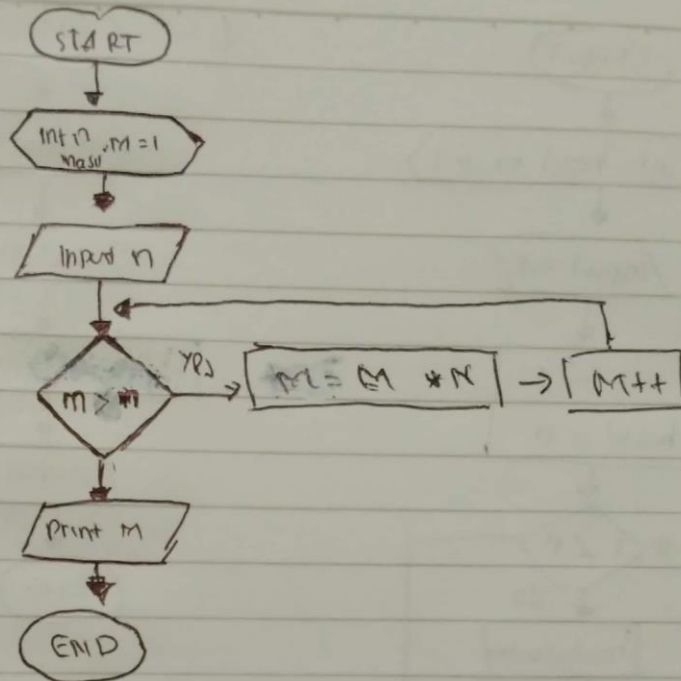 START
int n, m = 1
Input n
m >
Yes
M = M * N
M++
Print M
END